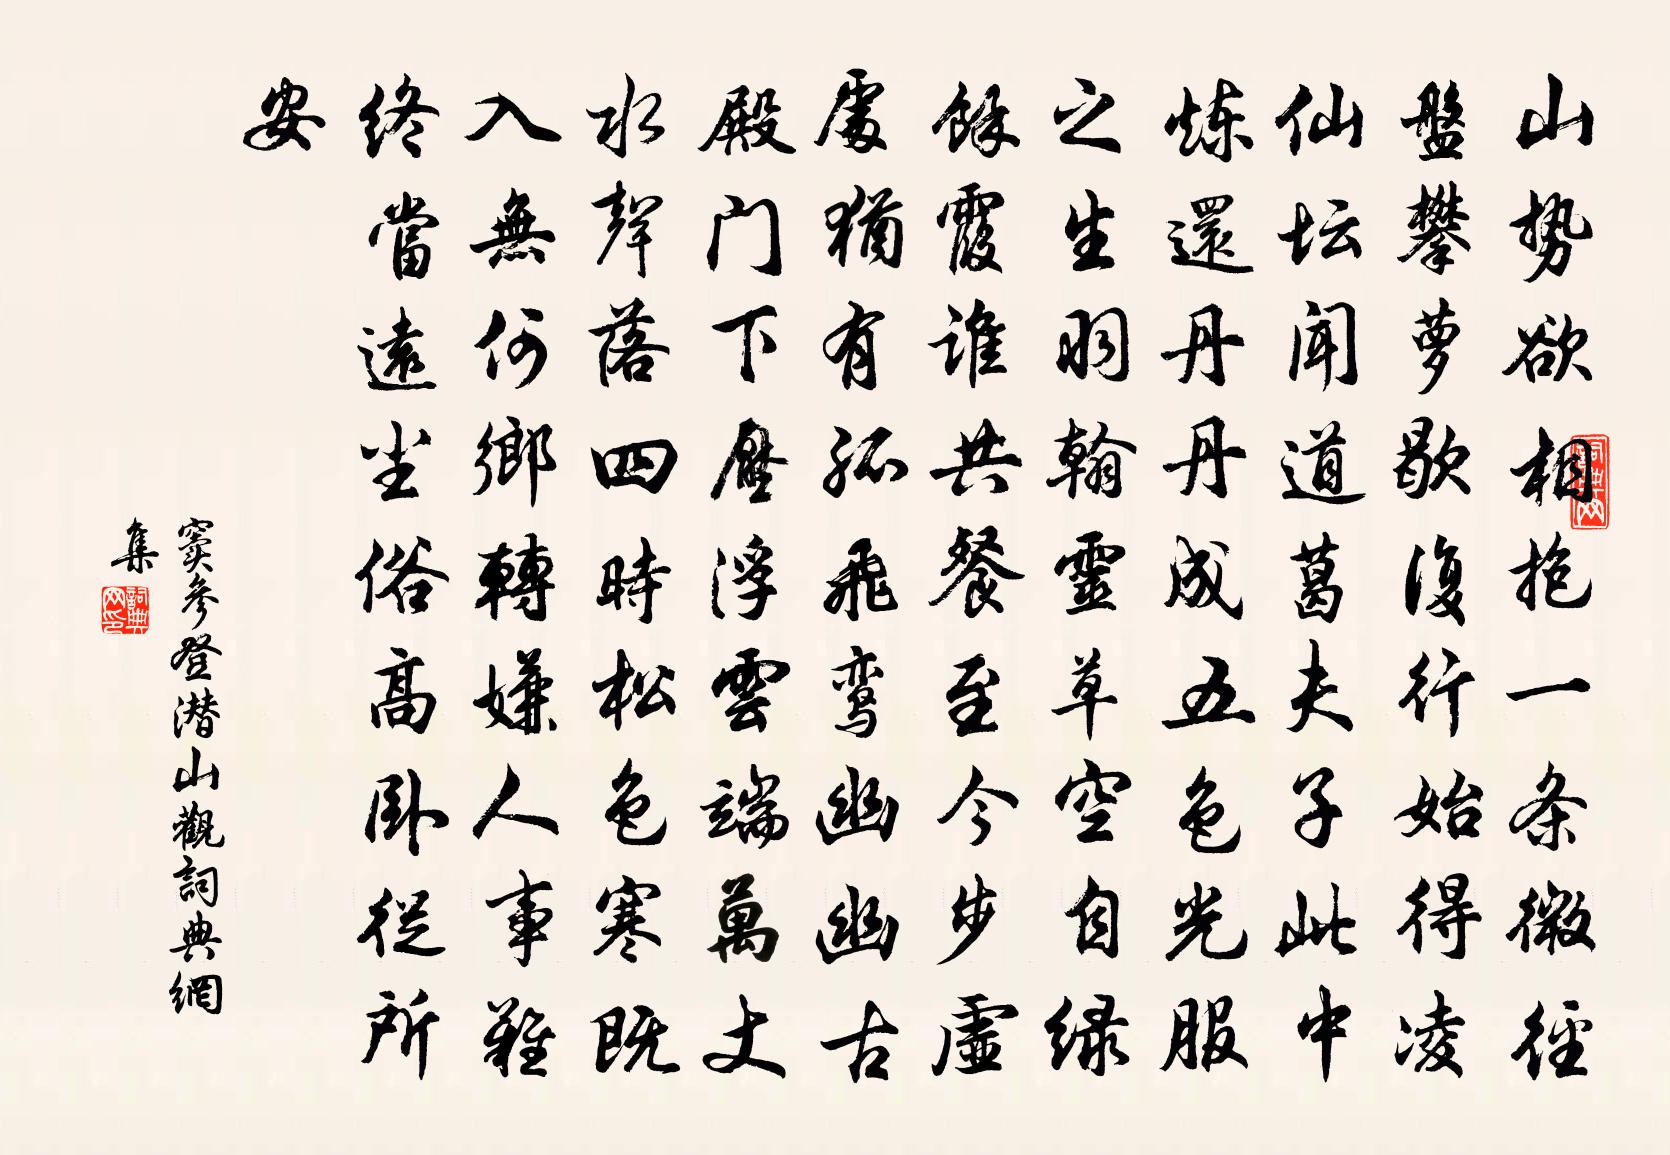 山势欲相抱一条微径
盤攀萝歇復行始得凌
仙坛闻道葛夫子此中
炼還丹丹成五色光服
之生羽翰靈草空自绿
餘霞谁共餐至今步虛
處猶有孤飛鸾幽幽古
殿门下壓浮雲端萬丈
水聲落四時松色寒既
入無何鄉轉嫌人事難
终當遠尘俗高卧從所
安
窦參登潜山觀詞典網
集
詞典网
詞典网印